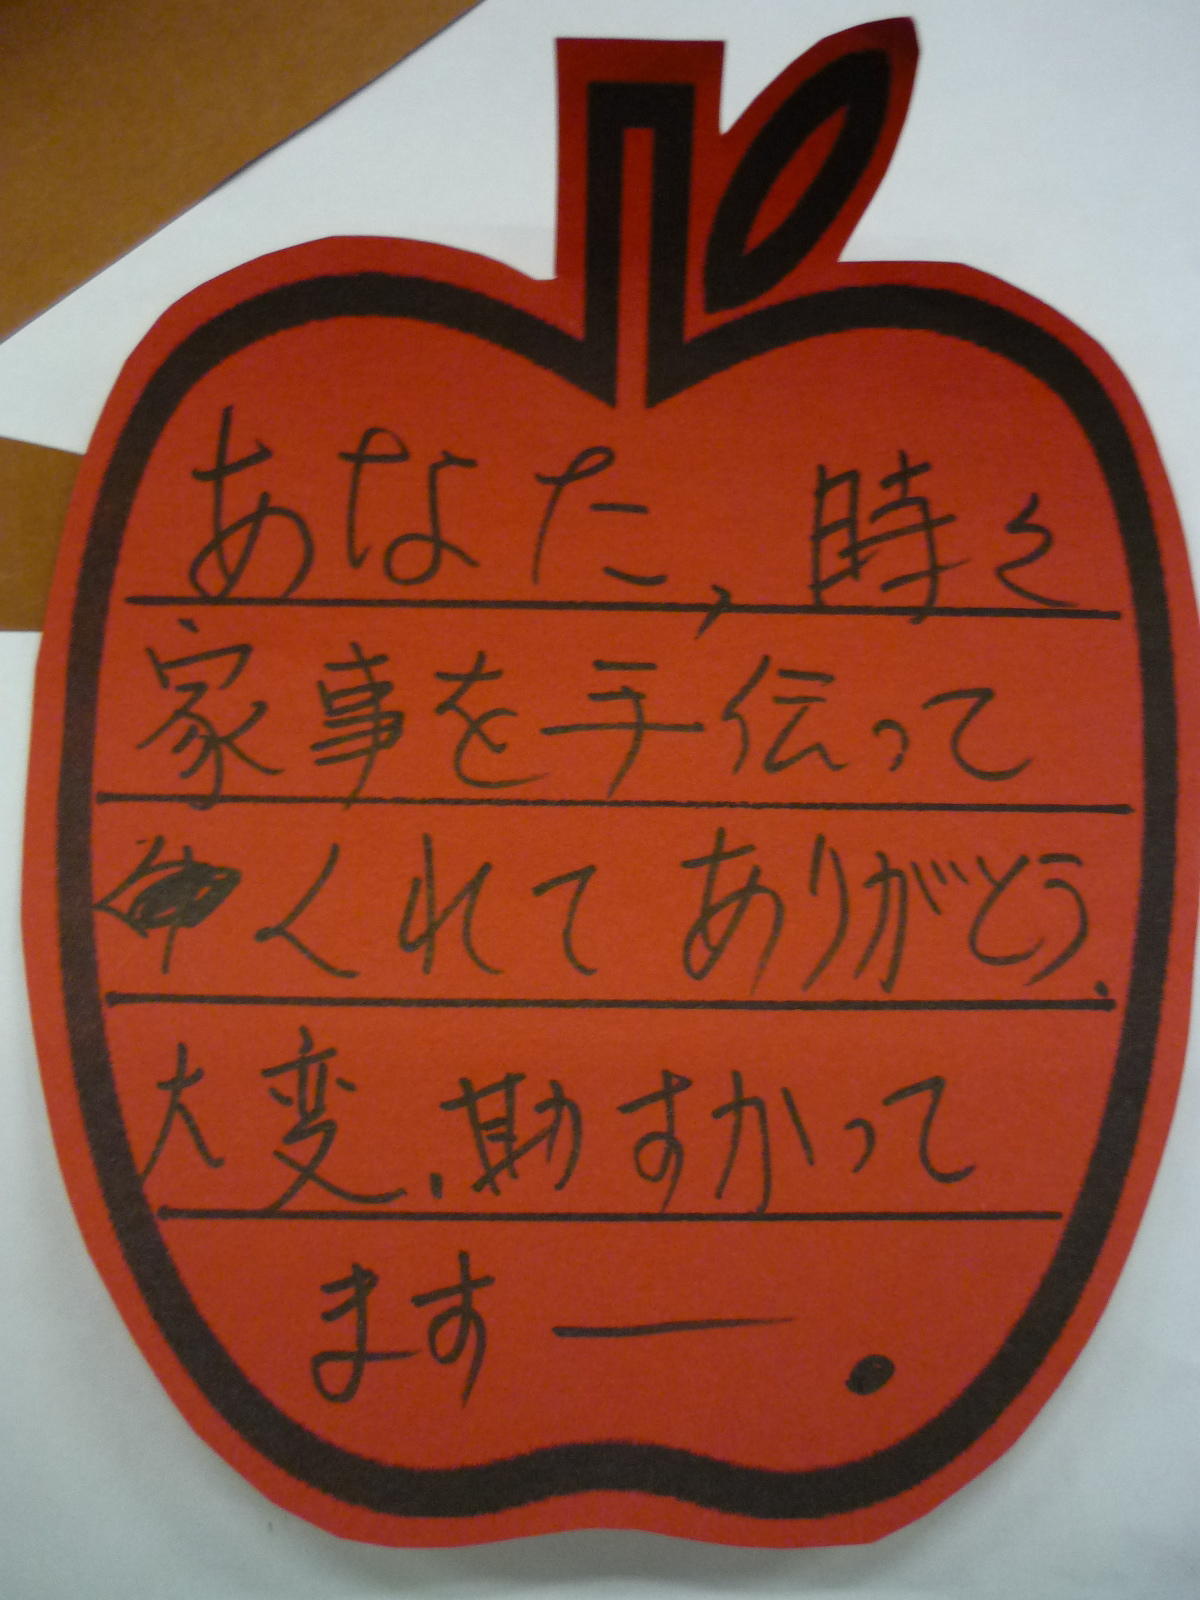 あなた、時々
家事を手伝って
くれてありがとう、
大変、勘すかって
ます—.